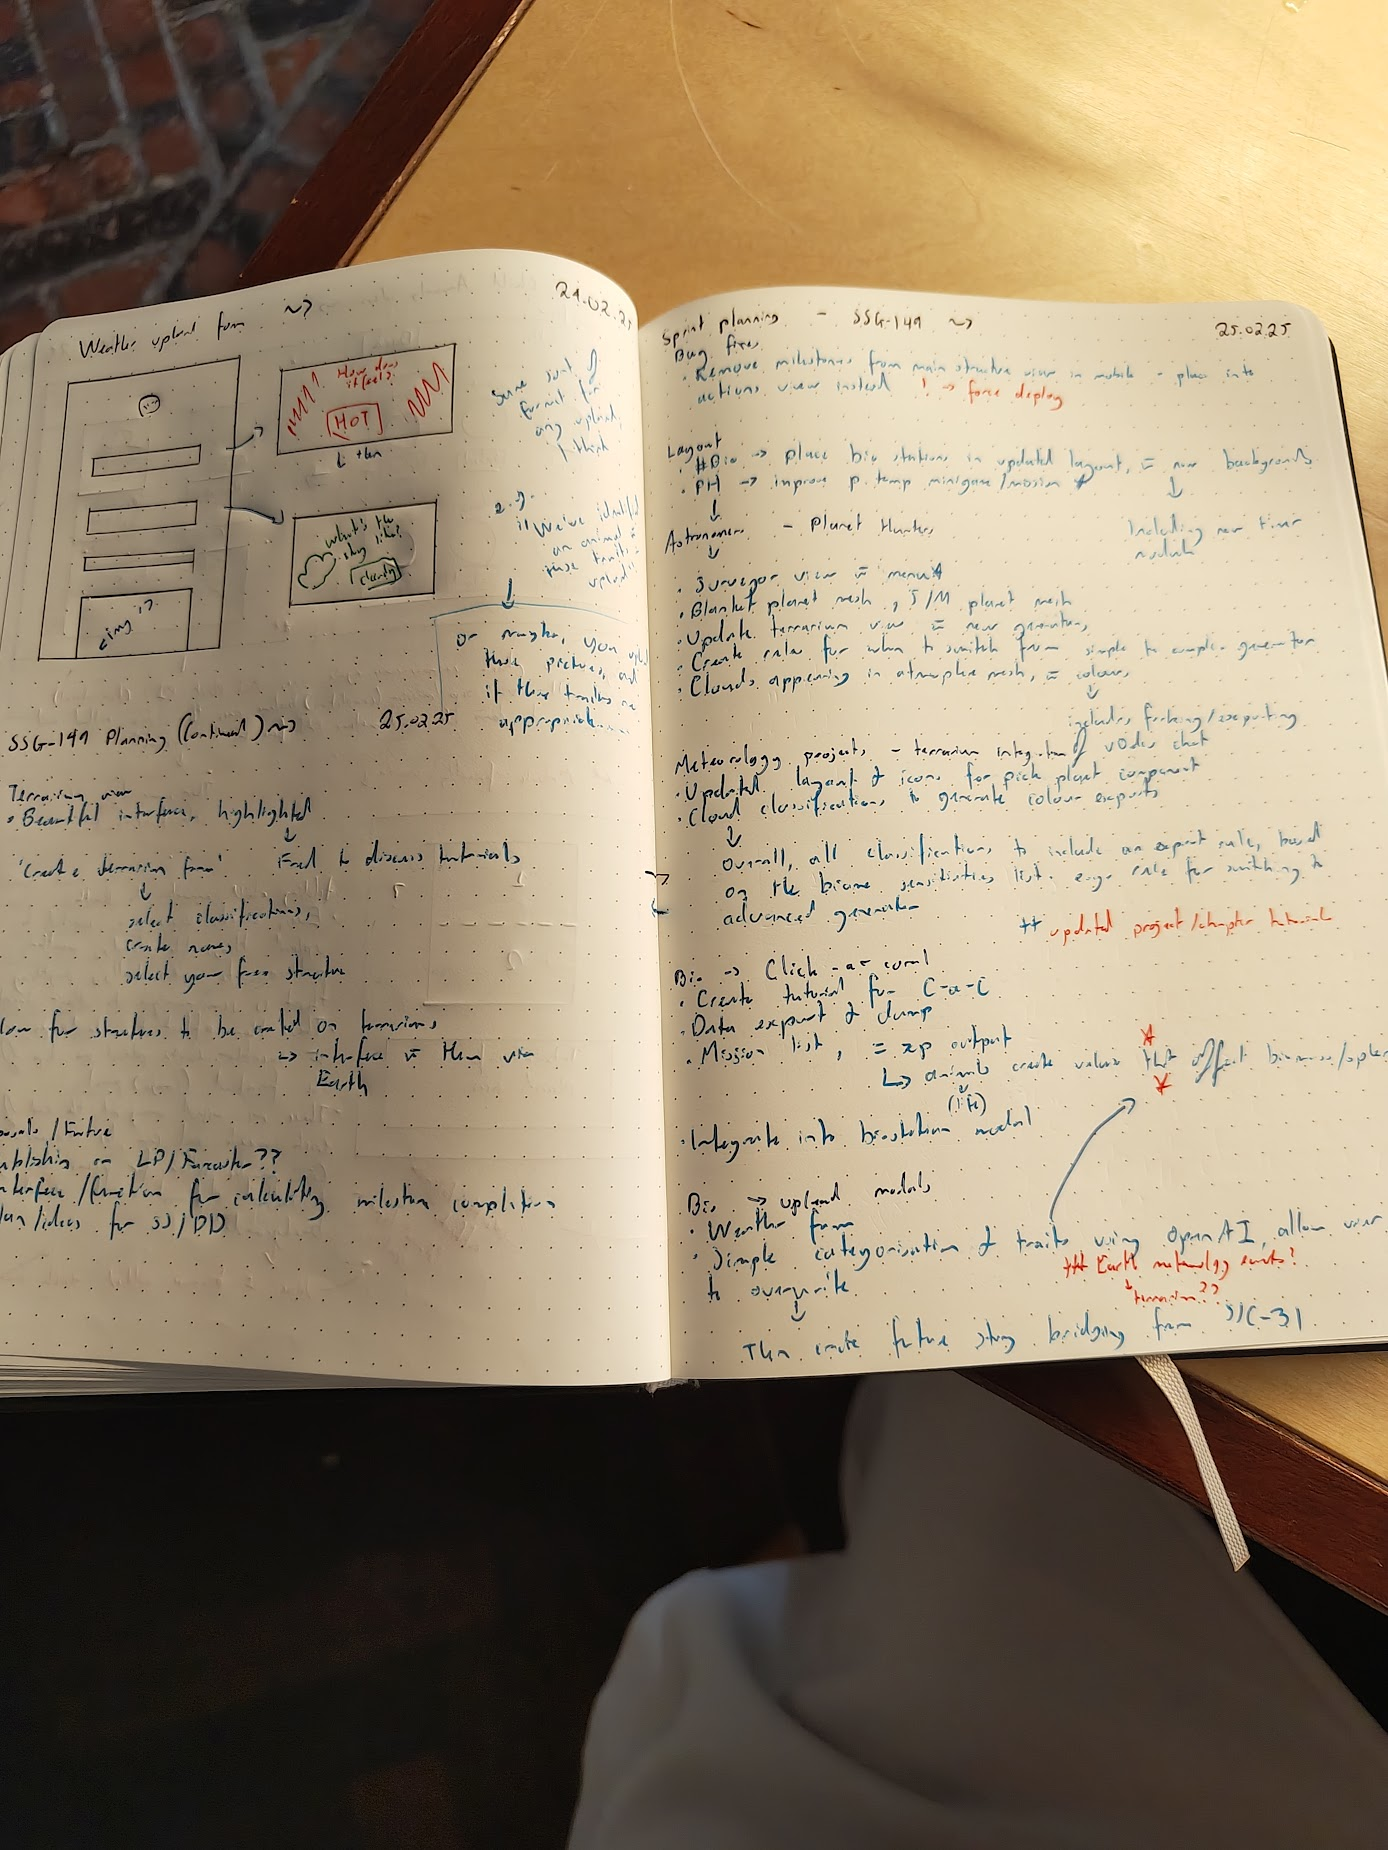 Weather upload form ~>
24.02.25
How does it feel?
HOT
↓ then
What's the sky like?
cloudy
<img>?
Same sort of
format for
any upload,
I think
e.g.
"We've identified
an animal =
these traits =
upload"
or maybe, you upload
these pictures, and
if these traits are
appropriate...
SSG-149 Planning (Continued) ~> 25.02.25
Terrarium view
• Beautiful interface, highlighted
↓
'Create terrarium from' Fred to discuss tutorials
↓
select classifications,
create names,
select your free structure
for structures to be created on terrariums
↳ interface = them via
Earth
/Future
on LP/Farcaster??
/function for calculating milestone completion
/ideas for
Sprint planning - SSG-149 ~>
25.02.25
Bug fixes
• Remove milestones from main structure view in mobile - place into
actions view instead ! → force deploy
Layout
#Bio → place bio stations in updated layout, = new backgrounds
• PH → improve p. temp minigame/mission
↓
Including new timer
module
Astronomers - Planet Hunters
↓
• Surveyor view = menu
• Blanket planet mesh, J/M planet mesh
• Update terrarium view = new generators
• Create rule for when to switch from simple to complex generator
• Clouds appearing in atmosphere mesh, = colours
↓
includes forking/exporting
Meteorology projects - terrarium integration of vodex chat
• Updated layout & icons for pick planet component
• Cloud classifications to generate colour exports
↓
Overall, all classifications to include an export rule, based
on the biome sensitivities list. e.g. rule for switching to
advanced generator
** updated project/chapter tutorial
Bio → Click-a-coral
• Create tutorial for C-a-C
• Data export & dump
• Mission list, = xp output
↳ animals create values that affect biomass/
(life)
• Integrate into biostation modal
Bio → upload modals
• Weather form
• Simple categorisation of traits using OpenAI, allow user
to overwrite
↓
*** Earth meteorology events?
↓
terrarium??
Then create future story bridging from SSC-31